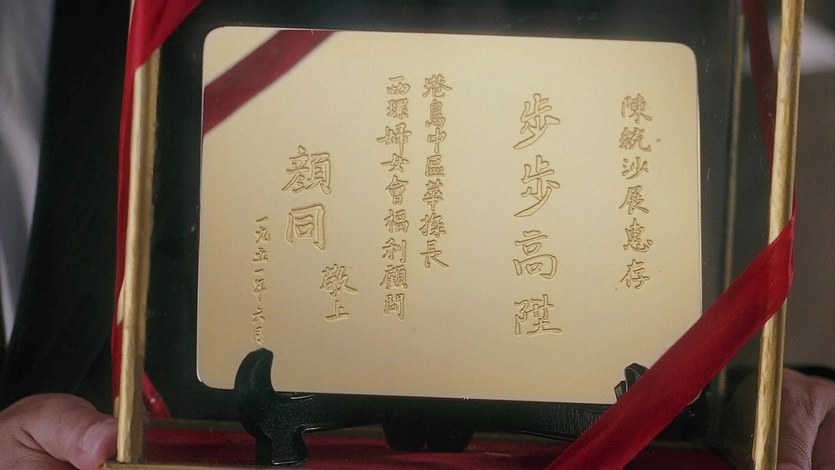 陳統沙展惠存
步步高陞
港島中區華探長
西環婦女會福利顧問
顏同
敬上
一九六一年六月